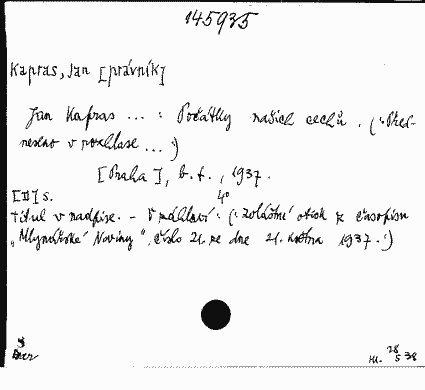 145935
Kapras, Jan [právník]
Jan Kapras ... : Počátky našich cechů . (: Před-
neseno v rozhlase ... :)
[Praha], b. t. , 1937.
[II] s. 4°
Titul v nadpise. - V záhlaví : (: Zvláštní otisk z časopisu
„Mlynářské Noviny", číslo 21. ze dne 21. května 1937. :)
28
5 38